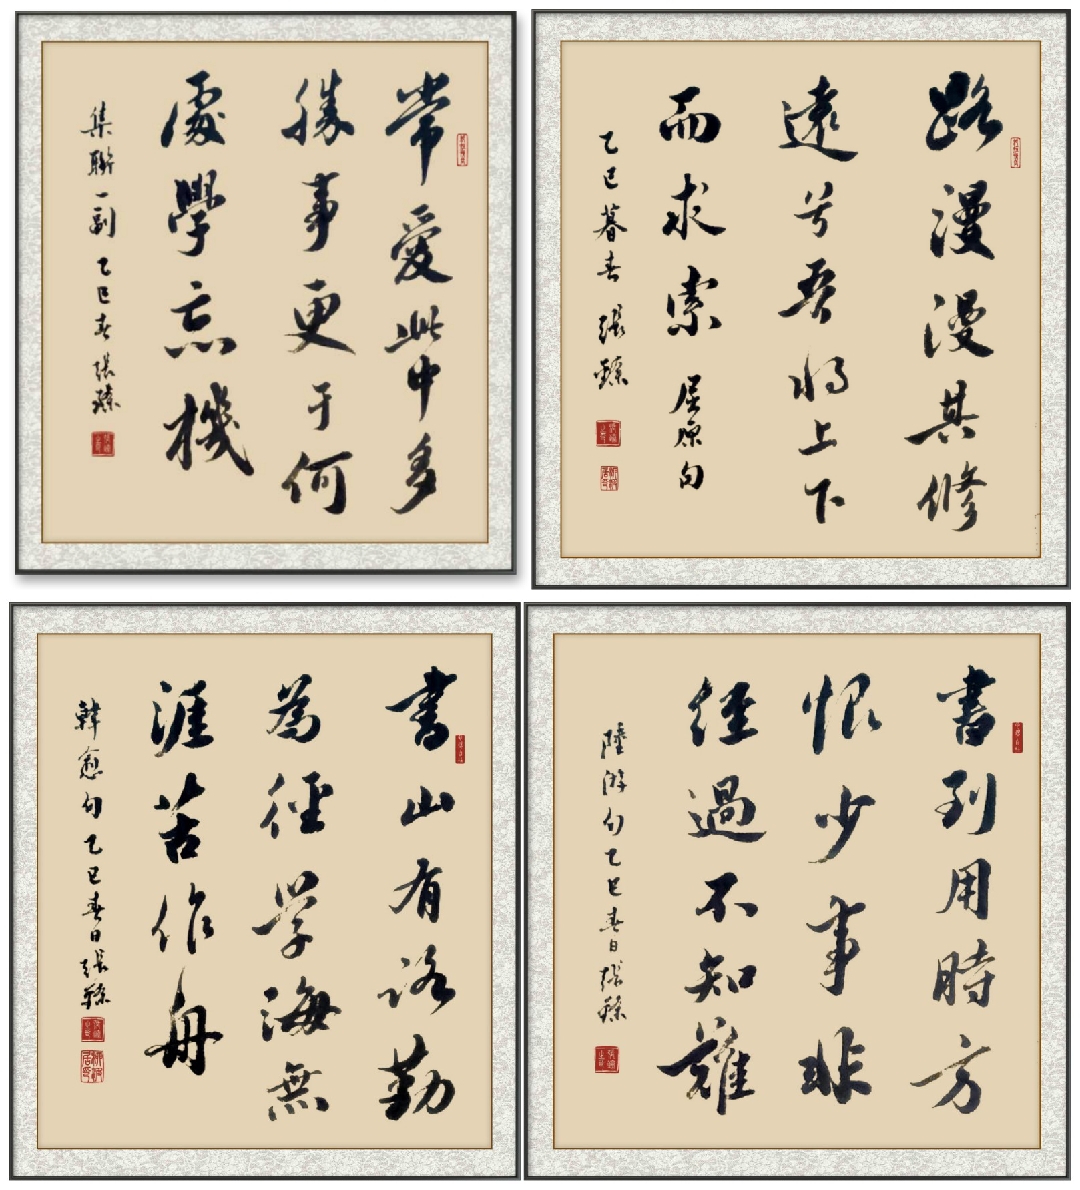 常愛此中多
勝事更于何
處學忘機
集聯一副 乙巳春 張
路漫漫其修
遠兮吾将上下
而求索 屈原句
乙巳暮春 張
書山有路勤
為徑学海無
涯苦作舟
韓愈句 乙巳春日 張
書到用時方
恨少事非
經過不知難
陸游句 乙巳春日 張